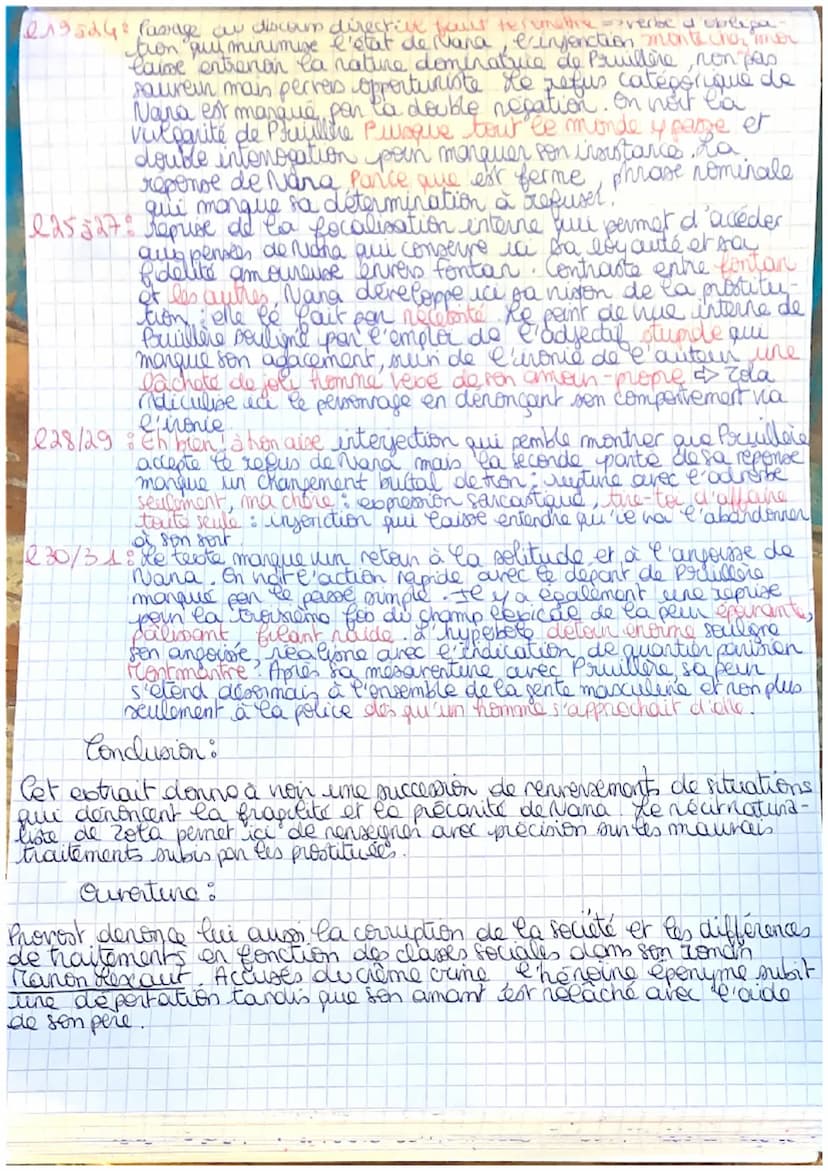 l19 à 24 : Passage au discours direct il faut te remettre => verbe d'obliga-
tion qui minimise l'état de Nana, l'injonction monte chez moi
laisse entrevoir la nature dominatrice de Prullière, non pas
sauveur mais pervers opportuniste. Le refus catégorique de
Nana est marqué par la double négation. On voit la
vulgarité de Prullière Puisque tout le monde y passe et
double interrogation pour marquer son insistance. La
réponse de Nana Parce que est ferme, phrase nominale
qui marque sa détermination à refuser.
l25 à 27 : Reprise de la focalisation interne qui permet d'accéder
aux pensées de Nana qui conserve ici sa loyauté et sa
fidélité amoureuse envers Fontan. Contraste entre Fontan
et les autres, Nana développe ici sa vision de la prostitu-
tion : elle le fait par nécessité. Le point de vue interne de
Prullière souligné par l'emploi de l'adjectif stupide qui
marque son agacement, suivi de l'ironie de l'auteur une
lâcheté de joli homme vexé de son amour-propre => Zola
ridiculise ici le personnage en dénonçant son comportement via
l'ironie.
l28/29 : Eh bien ! à ton aise, interjection qui semble montrer que Pruillère
accepte le refus de Nana mais la seconde partie de sa réponse
marque un changement brutal de ton : rupture avec l'adverbe
seulement, ma chère : expression sarcastique, tire-toi d'affaire
toute seule : injonction qui laisse entendre qu'il va l'abandonner
à son sort.
l30/31 : Le texte marque un retour à la solitude et à l'angoisse de
Nana. On note l'action rapide avec le départ de Prullière
marqué par le passé simple. Il y a également une reprise
pour la troisième fois du champ lexical de la peur épouvante,
pâlissant, filant raide. L'hyperbole détour énorme souligne
son angoisse, réalisme avec l'indication de quartier parisien
Montmartre. Après sa mésaventure avec Prullière, sa peur
s'étend désormais à l'ensemble de la gente masculine et non plus
seulement à la police dès qu'un homme s'approchait d'elle.
Conclusion :
Cet extrait donne à voir une succession de renversements de situations
qui dénoncent la fragilité et la précarité de Nana. Le récit natura-
liste de Zola permet ici de renseigner avec précision sur les mauvais
traitements subis par les prostituées.
Ouverture :
Prévost dénonce lui aussi la corruption de la société et les différences
de traitements en fonction des classes sociales dans son roman
Manon Lescaut. Accusés du même crime l'héroïne éponyme subit
une déportation tandis que son amant est relâché avec l'aide
de son père.